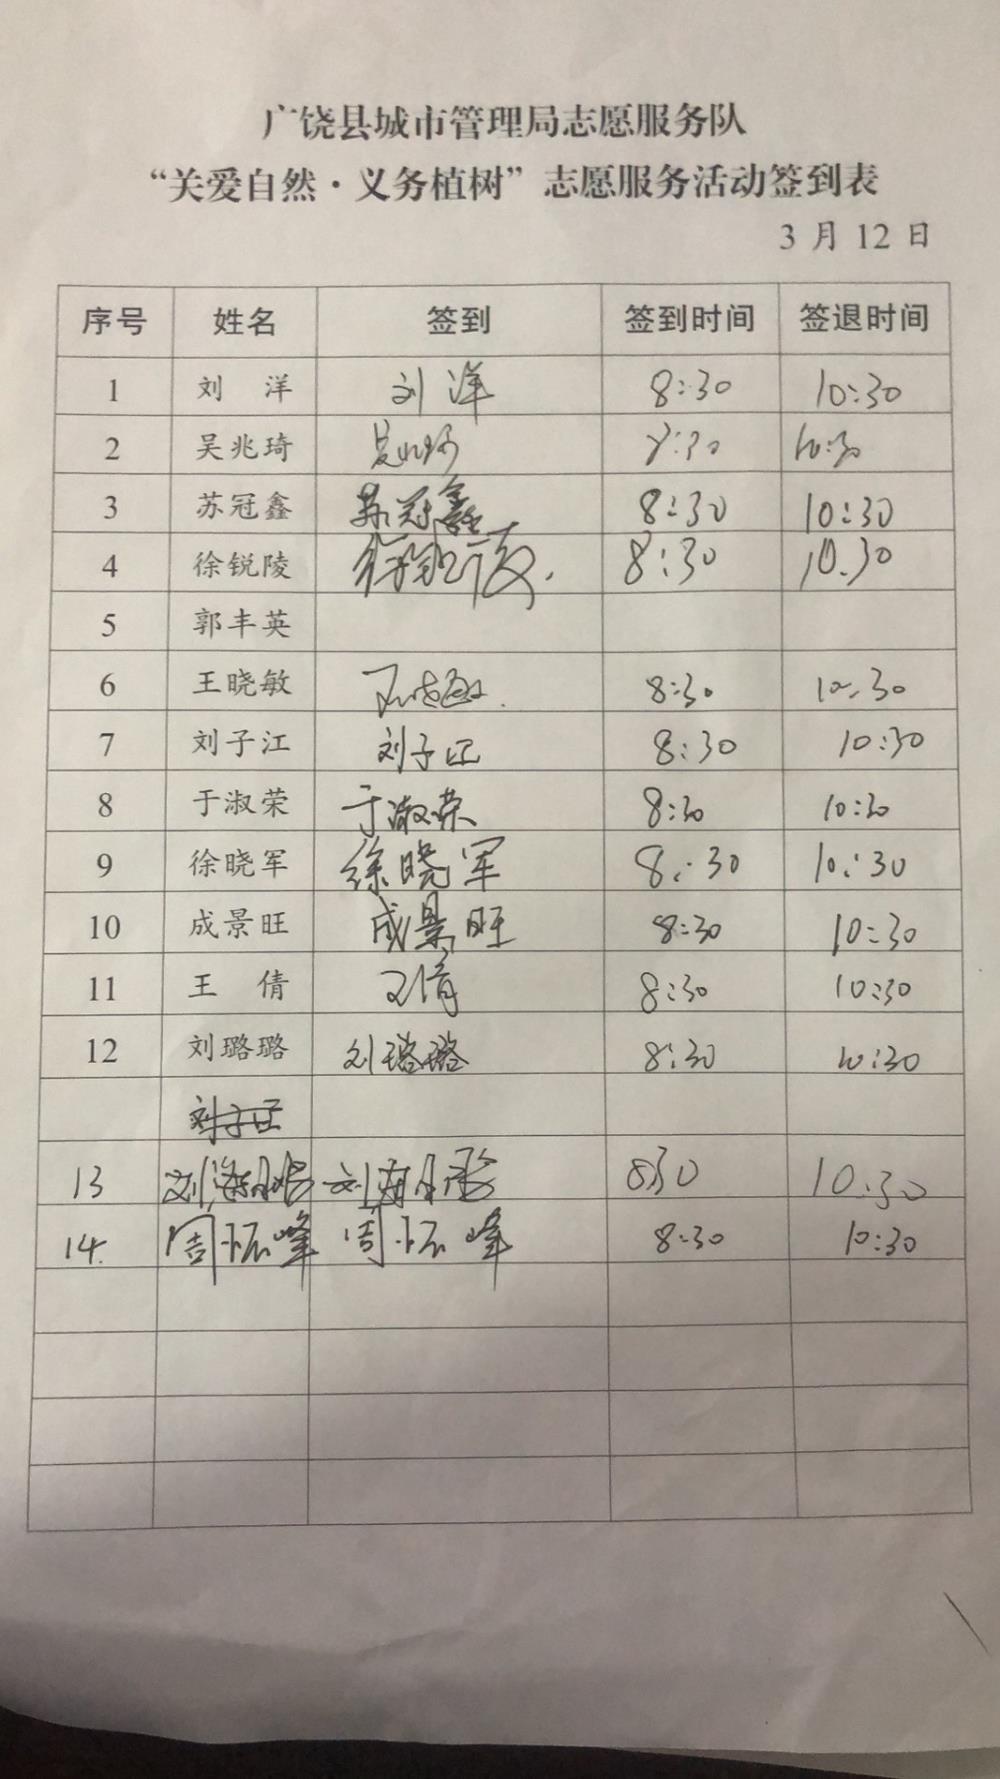 广饶县城市管理局志愿服务队
“关爱自然·义务植树”志愿服务活动签到表
3 月 12 日
序号 姓名 签到 签到时间 签退时间
1 刘 洋 刘洋 8:30 10:30
2 吴兆琦 吴兆琦 8:30 10:30
3 苏冠鑫 苏冠鑫 8:30 10:30
4 徐锐陵 徐锐陵 8:30 10.30
5 郭丰英
6 王晓敏 王晓敏 8:30 10:30
7 刘子江 刘子江 8:30 10:30
8 于淑荣 于淑荣 8:30 10:30
9 徐晓军 徐晓军 8:30 10:30
10 成景旺 成景旺 8:30 10:30
11 王 倩 王倩 8:30 10:30
12 刘璐璐 刘璐璐 8:30 10:30
13 刘 刘 8:30 10:30
14. 周振峰 周振峰 8:30 10:30